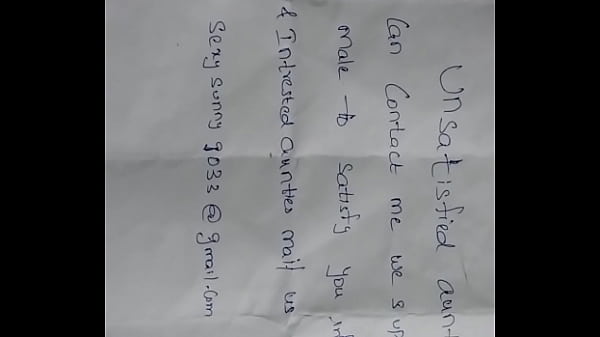 Unsatisfied aunt
Can Contact me we sup
male to satisfy you int
& Intrested aunties mail us
Sexy sunny 9033 @ gmail.com